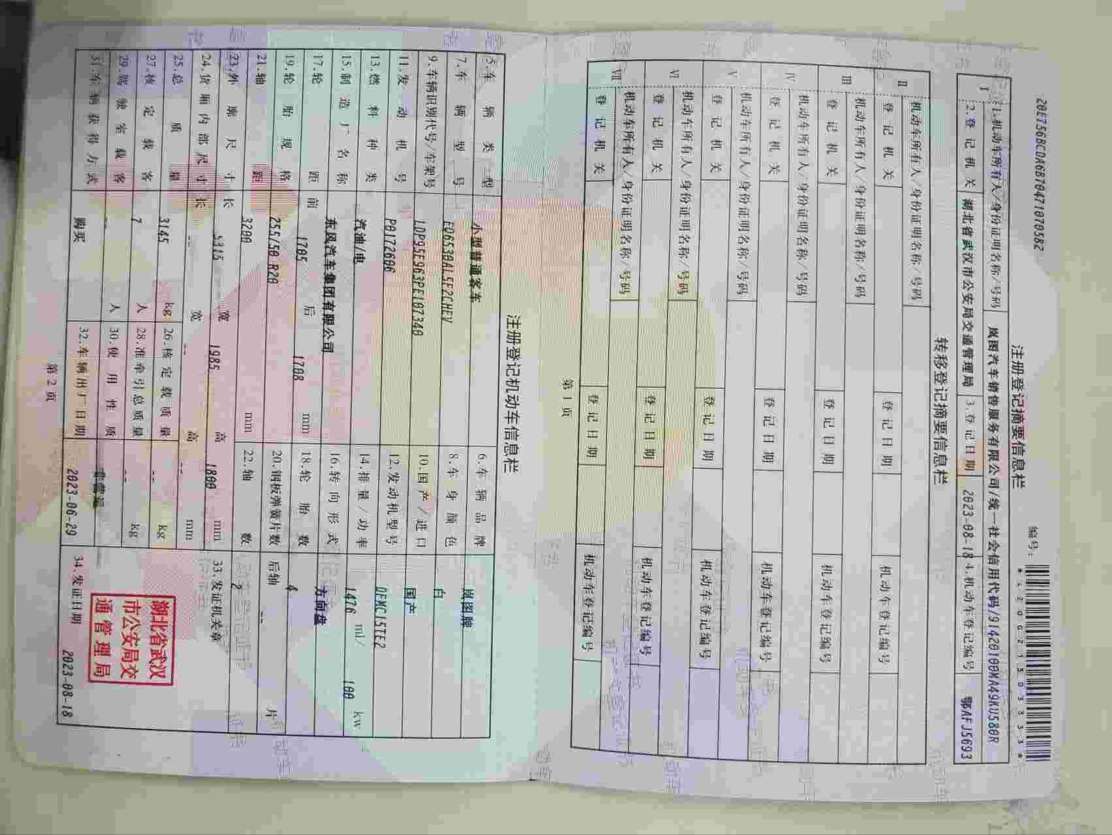 20E756BCDA6B704710705B2
编号：
*420021303333*
注册登记摘要信息栏
I 1.机动车所有人/身份证明名称/号码 岚图汽车销售服务有限公司/统一社会信用代码/91420100MA49KU580R
2.登记机关 湖北省武汉市公安局交通管理局 3.登记日期 2023-08-18 4.机动车登记编号 鄂AFJ5693
转移登记摘要信息栏
II 机动车所有人/身份证明名称/号码
登记机关 登记日期 机动车登记编号
III 机动车所有人/身份证明名称/号码
登记机关 登记日期 机动车登记编号
IV 机动车所有人/身份证明名称/号码
登记机关 登记日期 机动车登记编号
V 机动车所有人/身份证明名称/号码
登记机关 登记日期 机动车登记编号
VI 机动车所有人/身份证明名称/号码
登记机关 登记日期 机动车登记编号
VII 机动车所有人/身份证明名称/号码
登记机关 登记日期 机动车登记编号
第1页
注册登记机动车信息栏
5.车辆类型 小型普通客车 6.车辆品牌 岚图牌
7.车辆型号 EQ6530AL5F2CHEV 8.车身颜色 白
9.车辆识别代号/车架号 LDP95E963PE107340 10.国产/进口 国产
11.发动机号 P0172606 12.发动机型号 DFMC15TE2
13.燃料种类 汽油/电 14.排量/功率 1476 ml/ 100 kw
15.制造厂名称 东风汽车集团有限公司 16.转向形式 方向盘
17.轮距 前 1705 后 1708 mm 18.轮胎数 4
19.轮胎规格 255/50 R20 20.钢板弹簧片数 后轴 -- 片
21.轴距 3200 mm 22.轴数 2
23.外廓尺寸 长 5315 宽 1985 高 1800 mm 33.发证机关章
24.货厢内部尺寸 长 -- 宽 -- 高 -- mm
25.总质量 3145 kg 26.核定载质量 -- kg
27.核定载客 7 人 28.准牵引总质量 -- kg
29.驾驶室载客 -- 人 30.使用性质
31.车辆获得方式 购买 32.车辆出厂日期 2023-06-29 34.发证日期 2023-08-18
湖北省武汉
市公安局交
通管理局
第2页